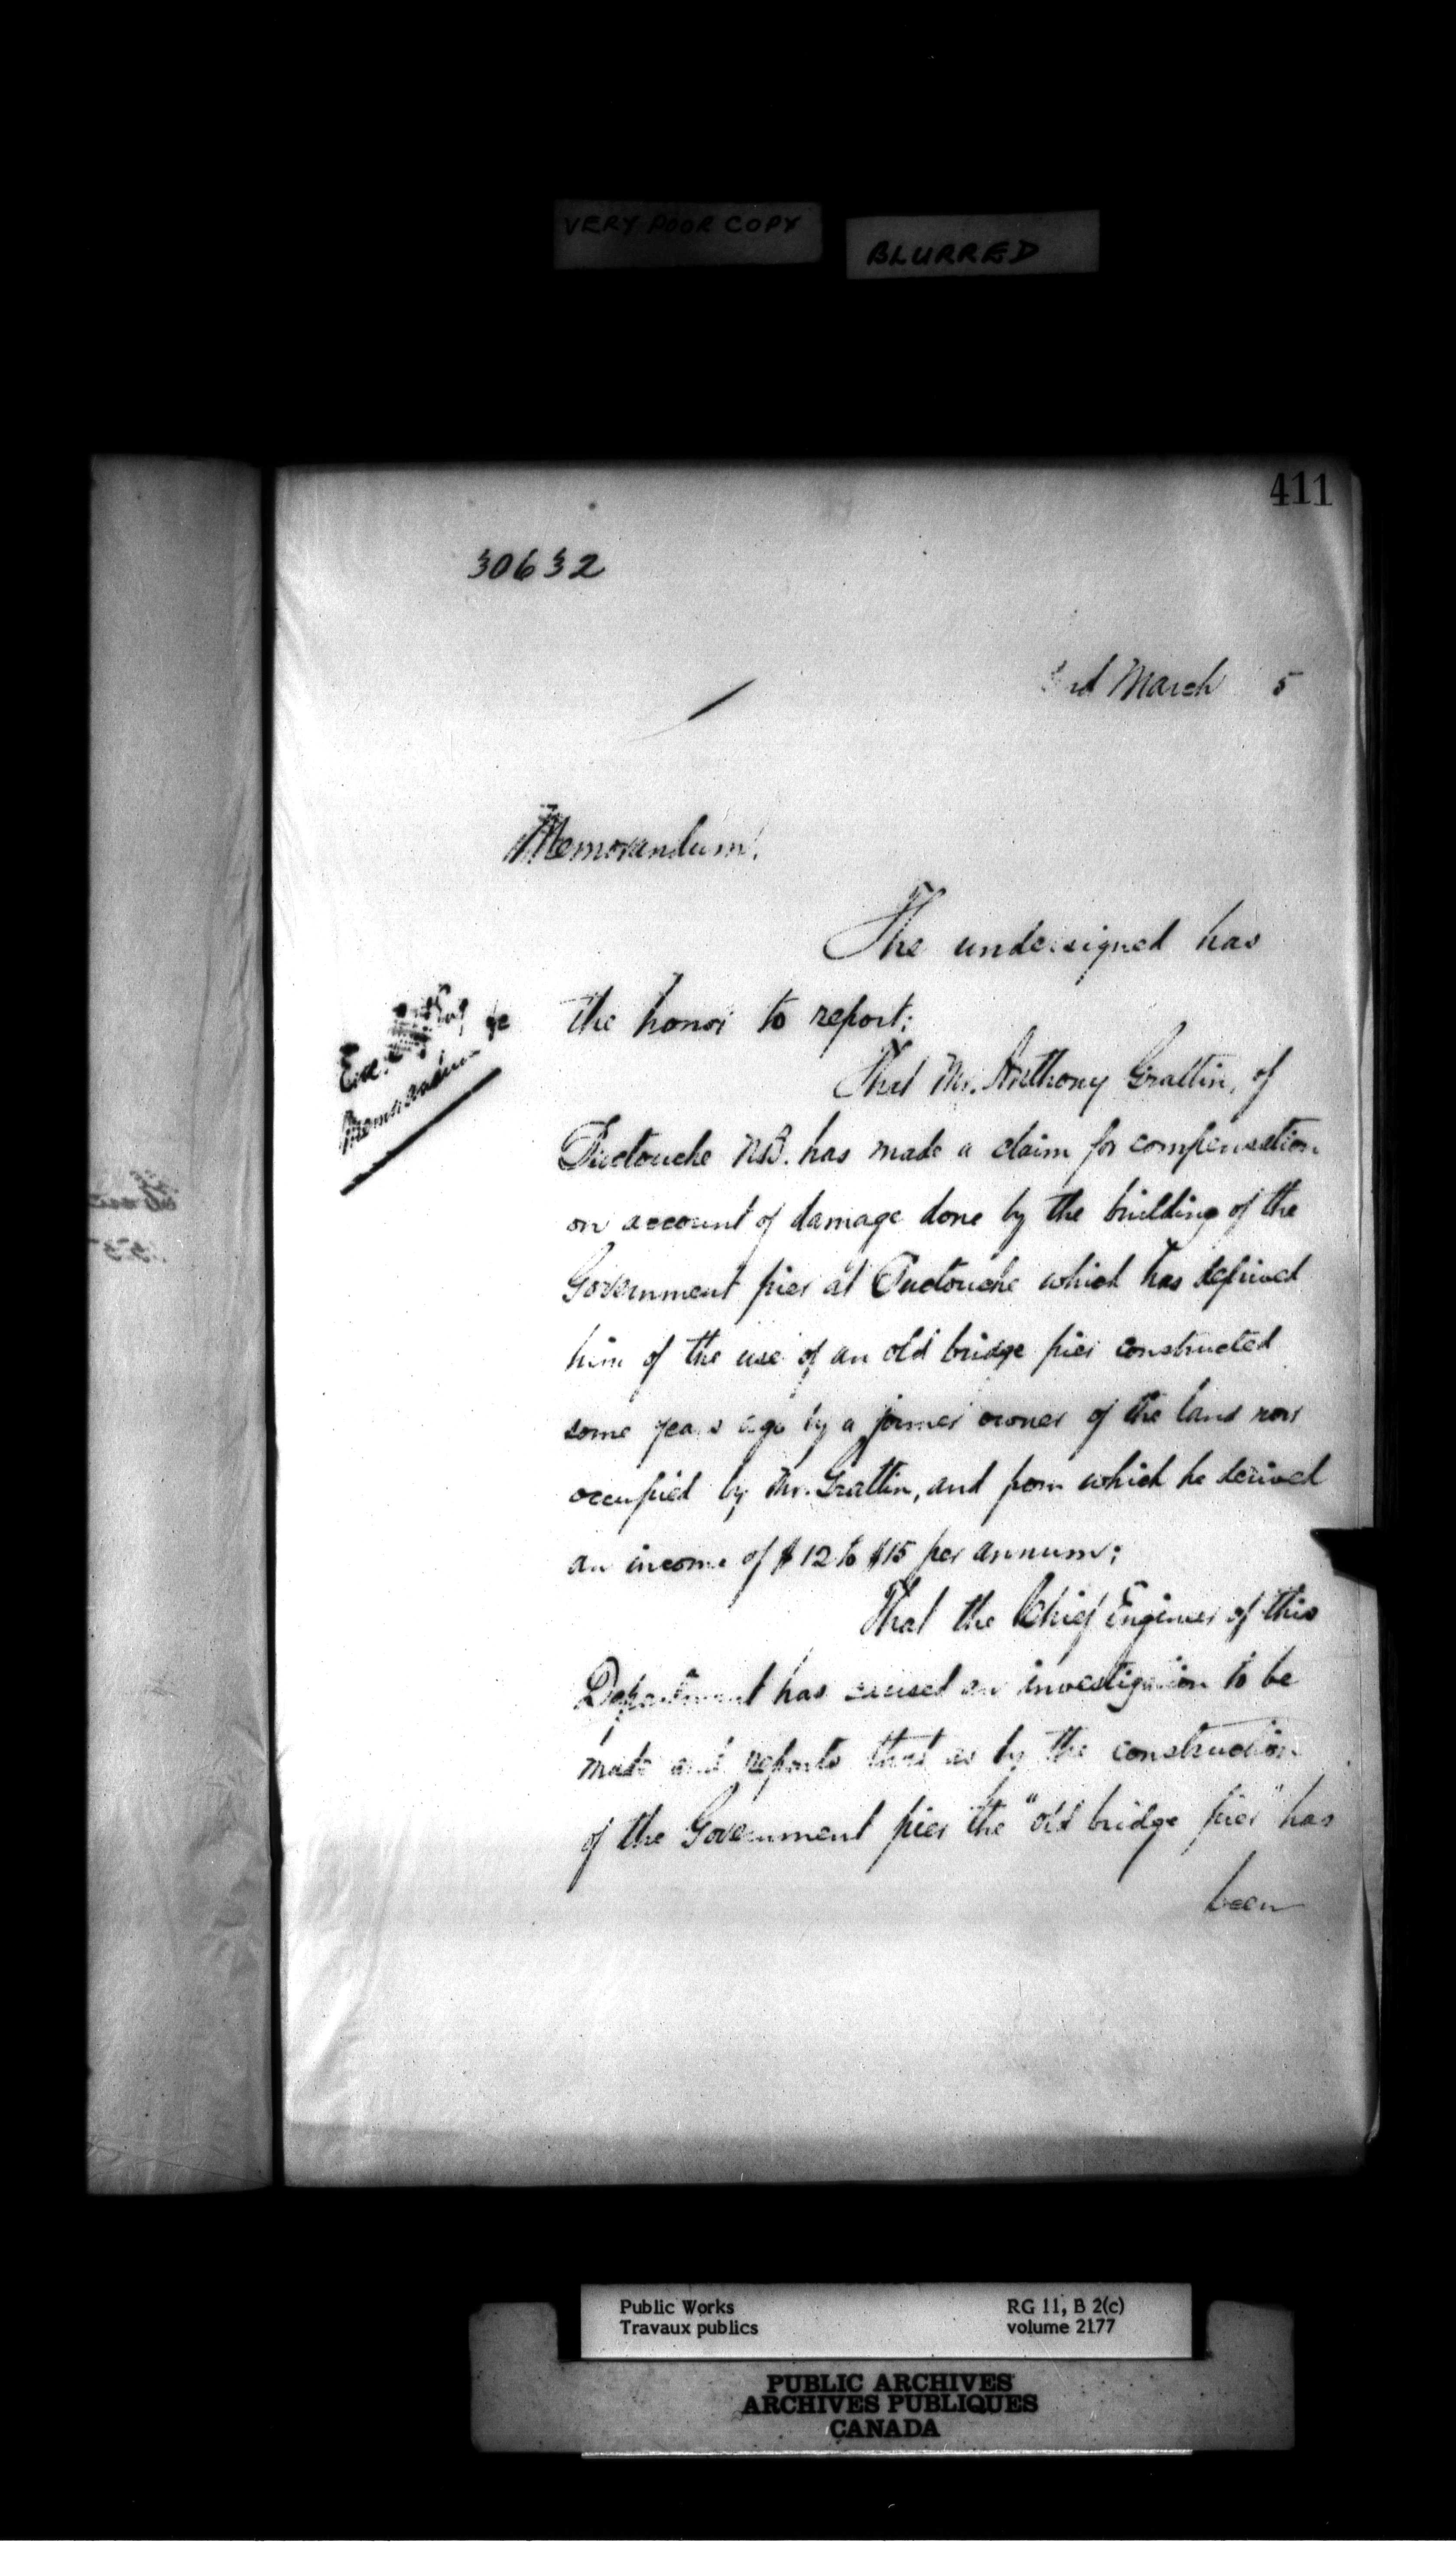 VERY POOR COPY
BLURRED
411
30632
3rd March 5
Memorandum.
The undersigned has
the honor to report:
Memorandum
That Mr. Anthony Grattin, of
Buctouche N.B. has made a claim for compensation
on account of damage done by the building of the
Government pier at Buctouche which has deprived
him of the use of an old bridge pier constructed
some years ago by a former owner of the land now
occupied by Mr. Grattin, and from which he derived
an income of $12 to $15 per annum;
That the Chief Engineer of this
Department has caused an investigation to be
made and reports that as by the construction
of the Government pier the "old bridge pier" has
been
Public Works
Travaux publics
RG 11, B 2(c)
volume 2177
PUBLIC ARCHIVES
ARCHIVES PUBLIQUES
CANADA